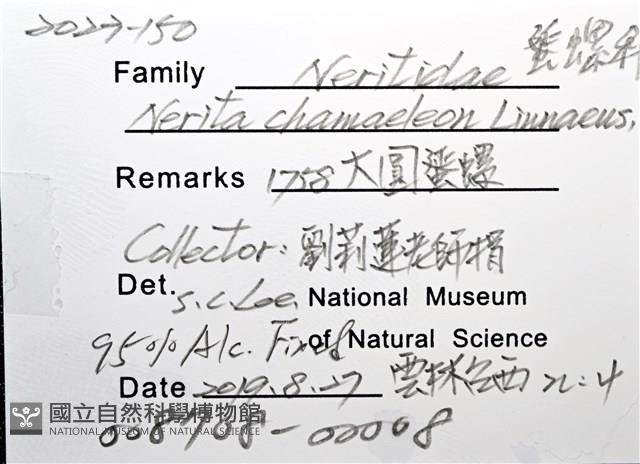 2023-150
Family Neritidae 蜑螺科
Nerita chamaeleon Linnaeus,
Remarks 1758 大圓蜑螺
Collector: 劉莉蓮老師捐
Det. S.C. Lee. National Museum
95% Alc. Fixed of Natural Science
Date 2019.8.27 雲林台西 n=4
國立自然科學博物館
NATIONAL MUSEUM OF NATURAL SCIENCE
-00008